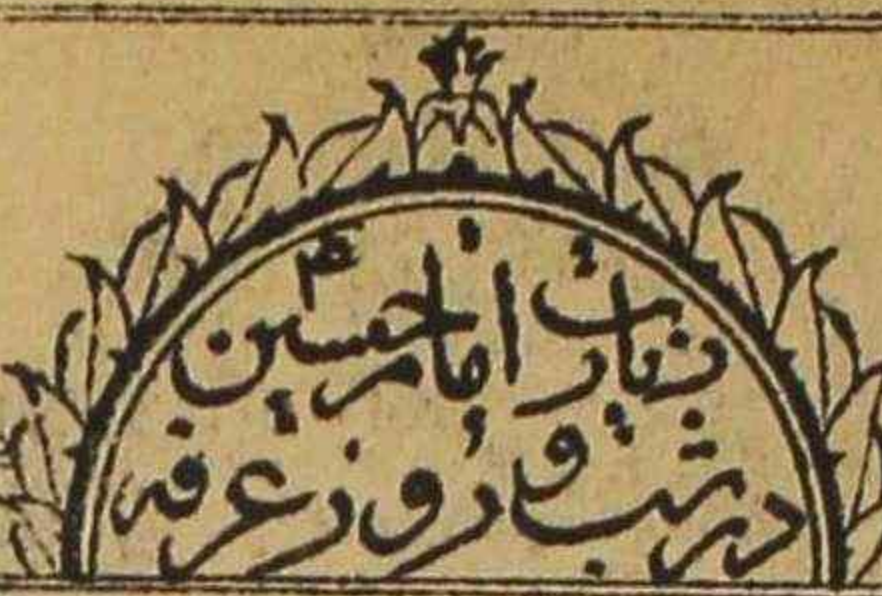 زیارت امام حسین ع
در شب و روز عرفه